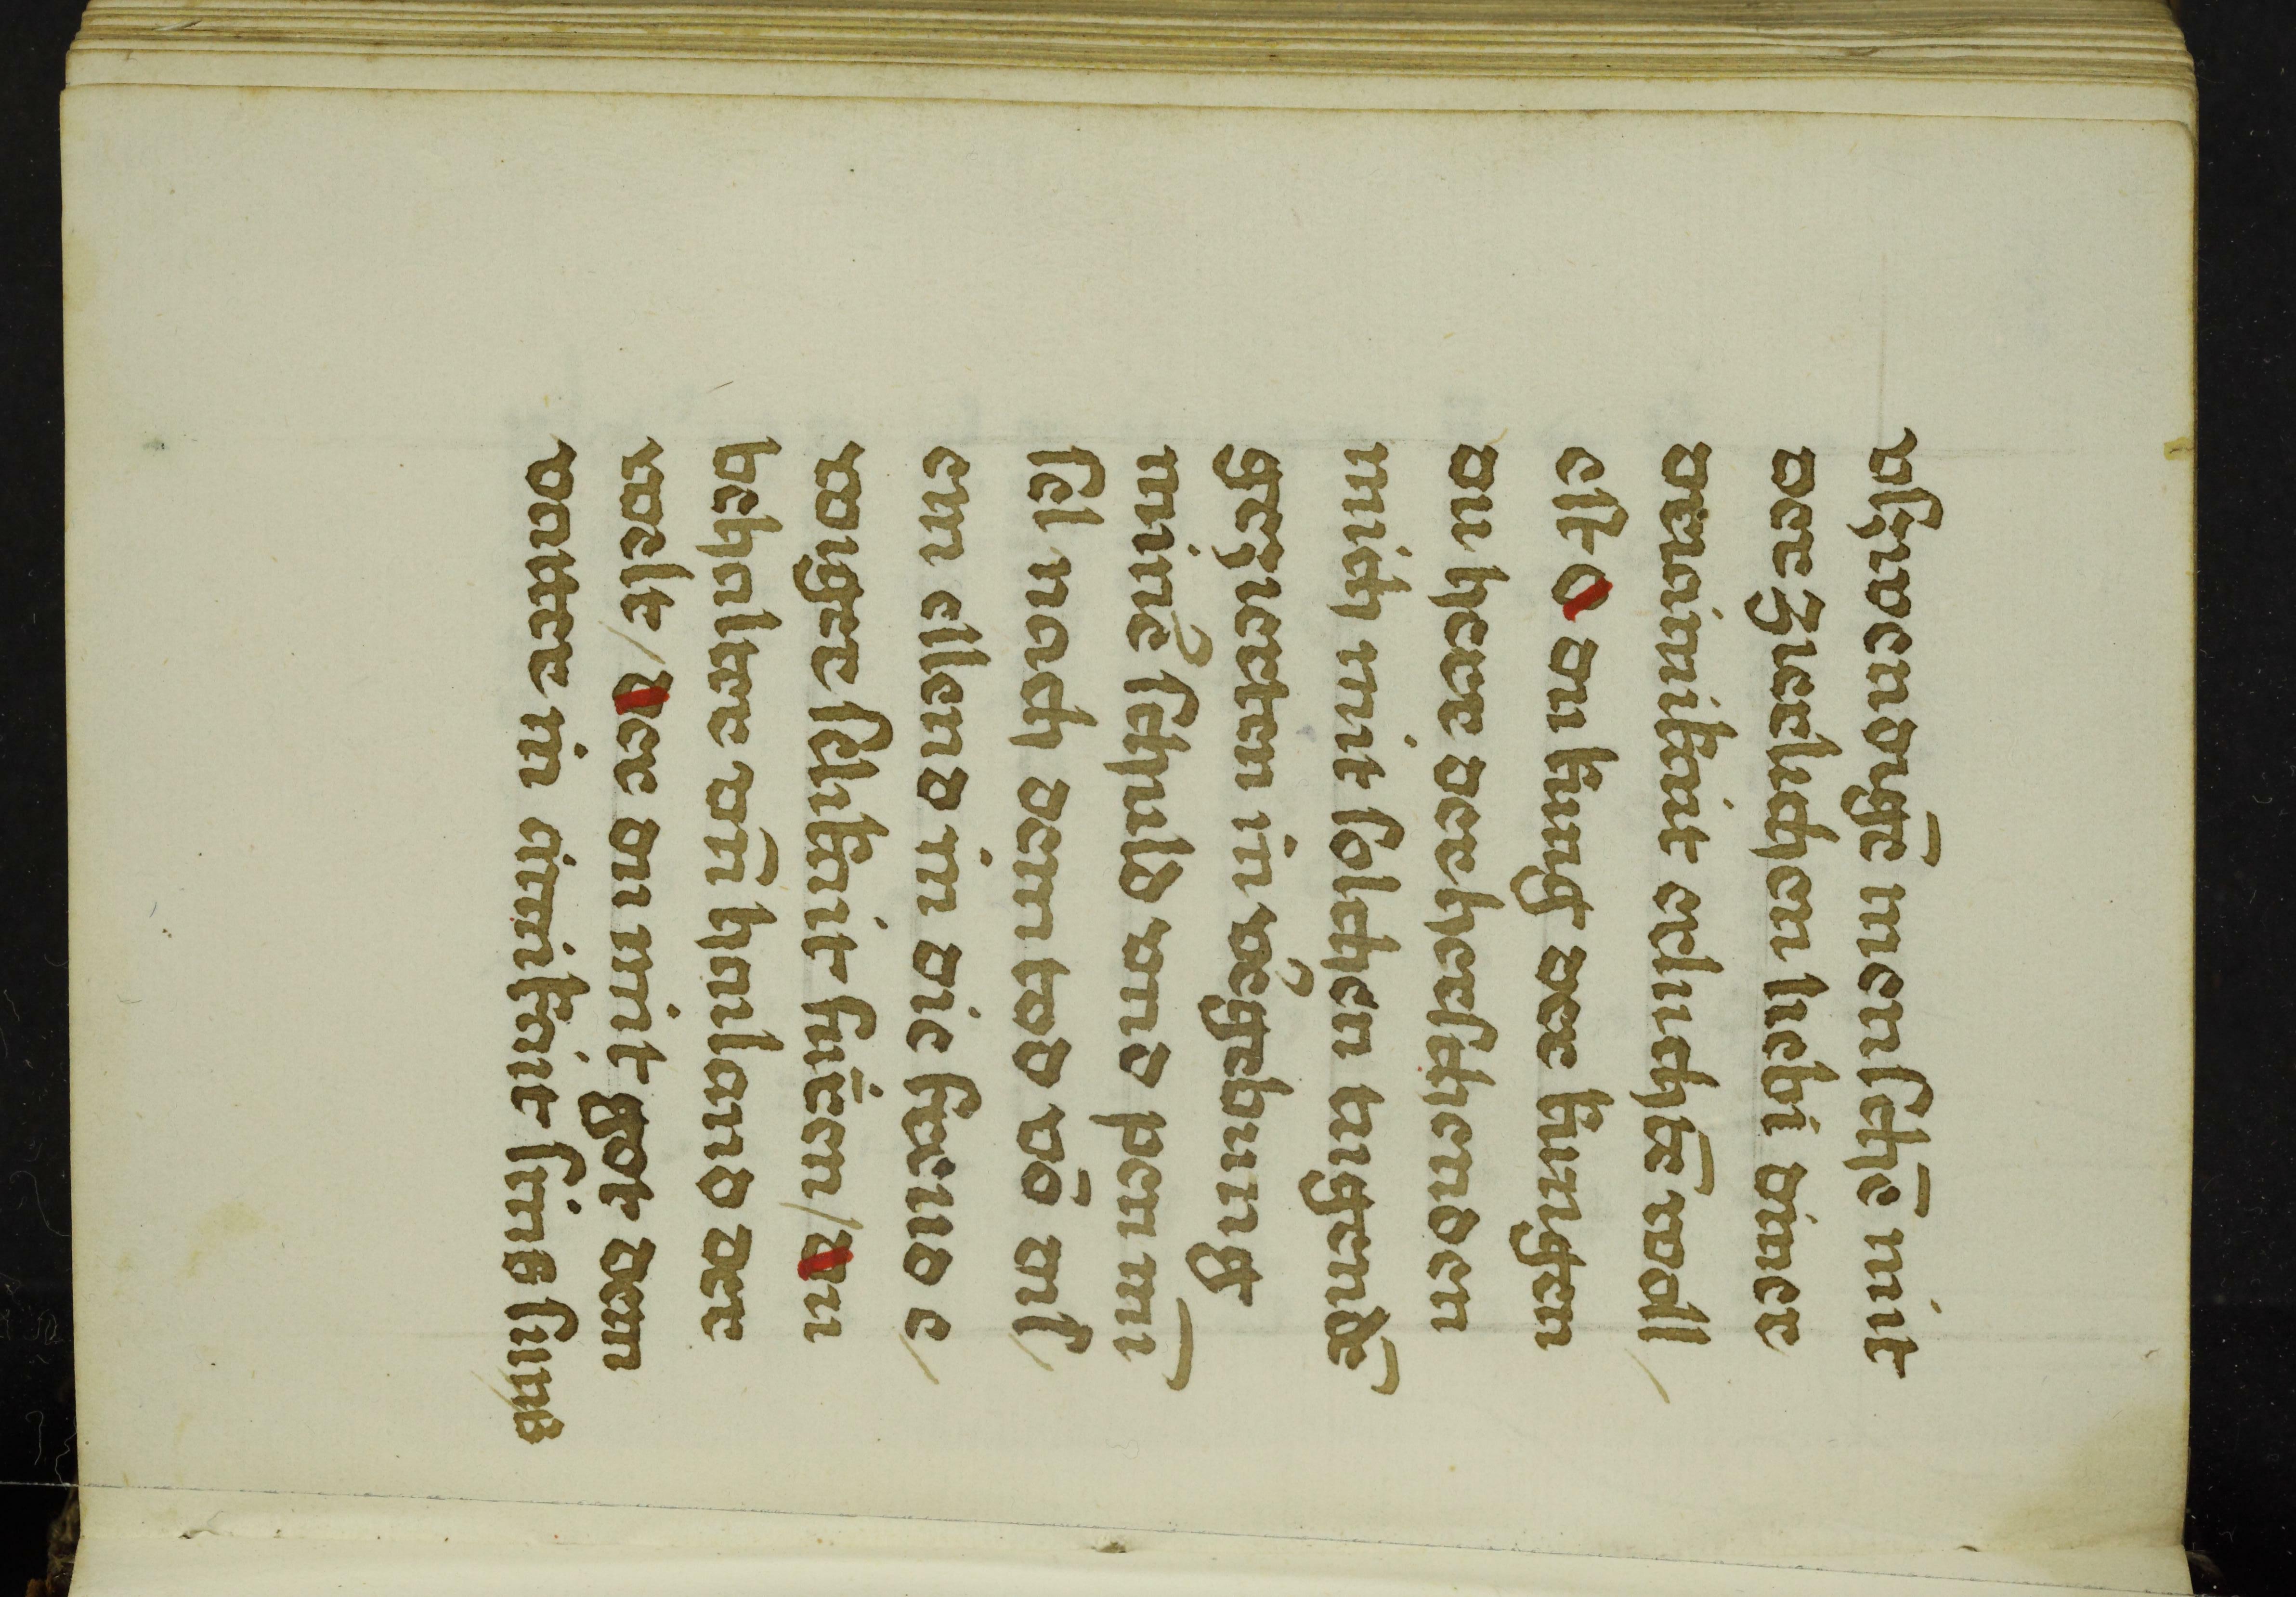 vſwendigē menſchē mit
der zierlichen liebi diner
erluchtē woll
eſt O du kung der kungen
du herre der herſchenden
mich mit ſolchen tugendē
gezierten in vergebung
miner ſchuld vnd pen mī
ſel nach dem tod vō uſ
em ellend in die freud e
wiger ſelikait fueren / du
behalter vnd hailand der
welt / der du mit got dem
vatter in ainikait ſins ſuns